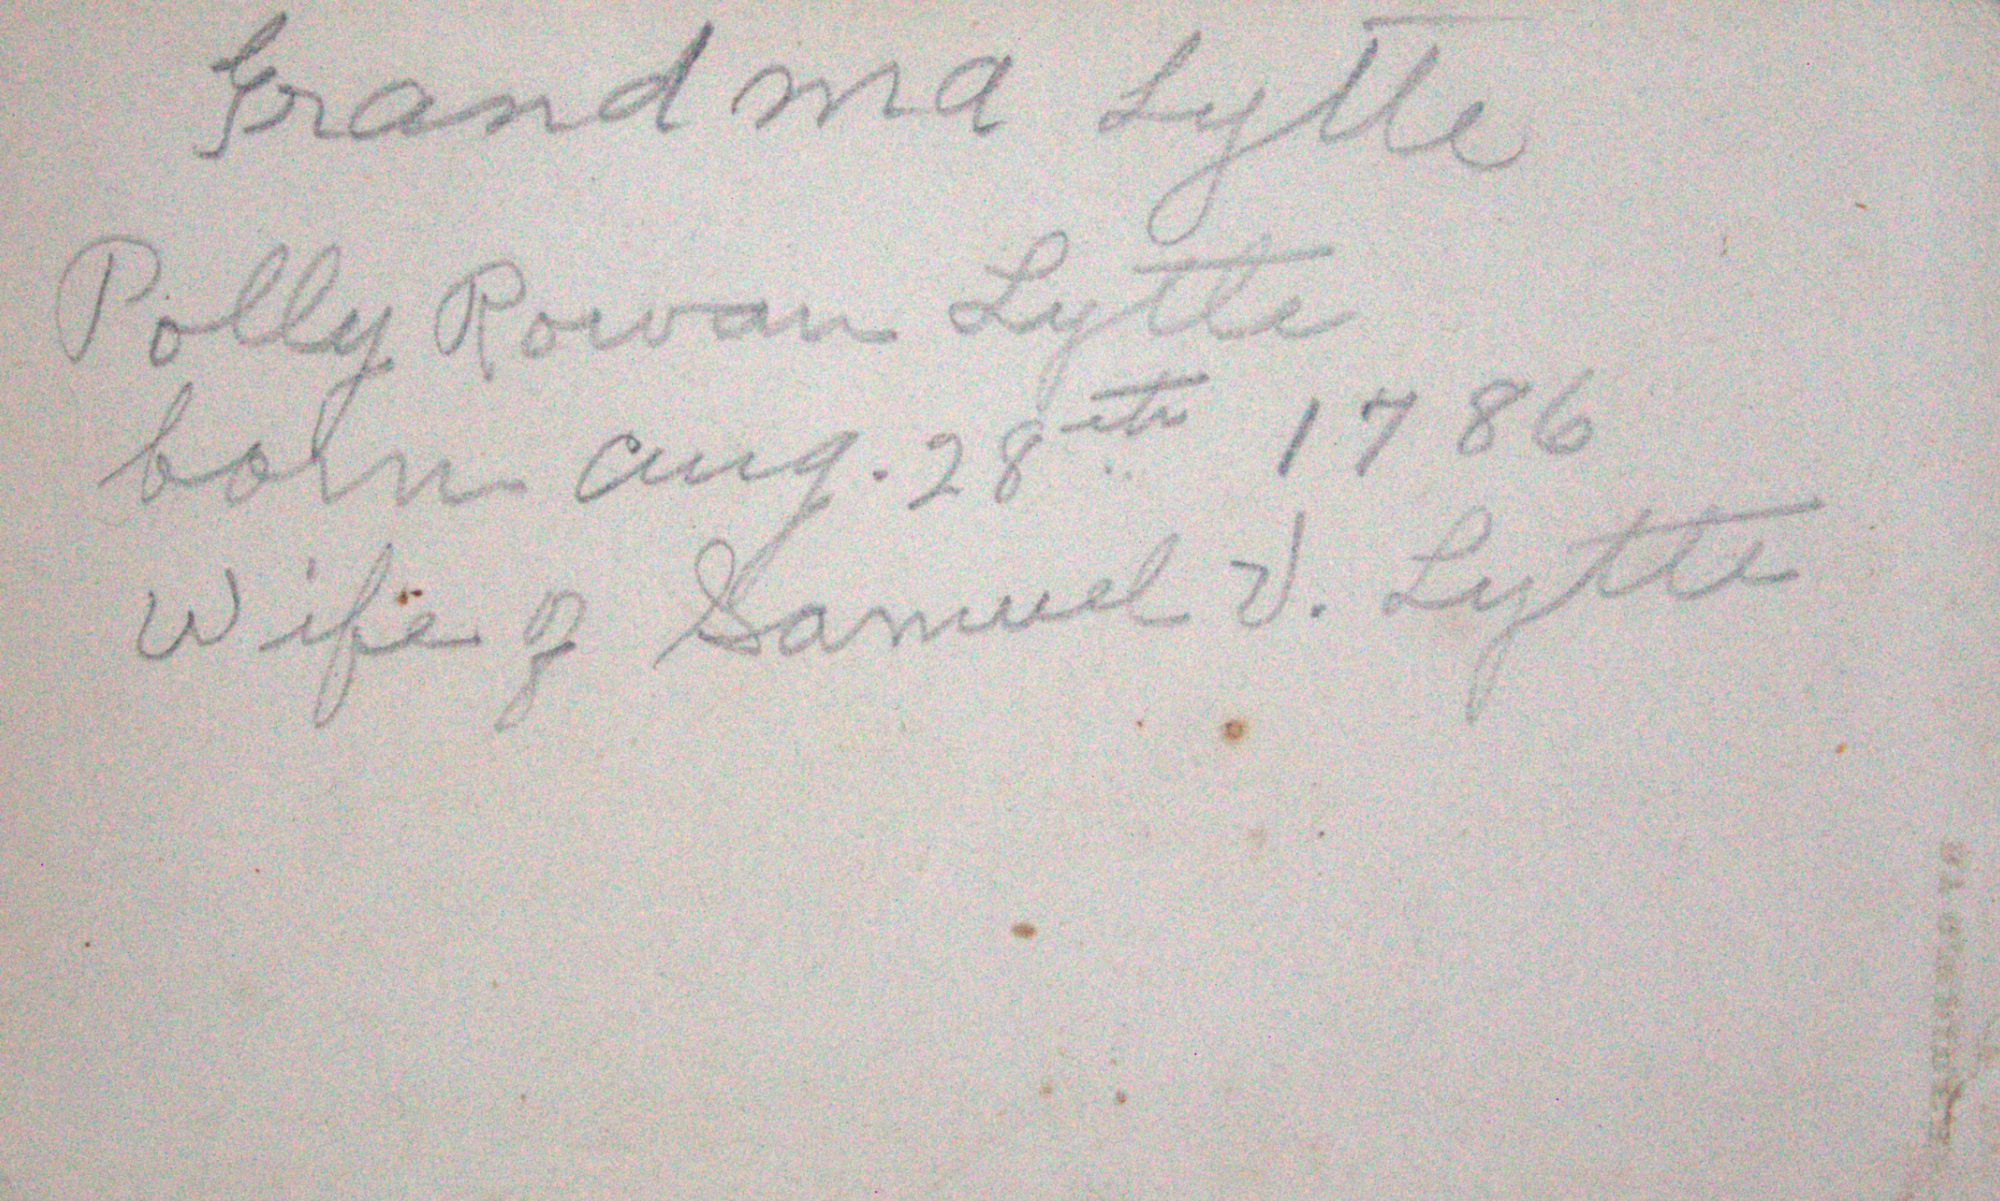 Grandma Lytle
Polly Rowan Lytle
born aug. 28eth 1786
Wife of Samuel V. Lytle